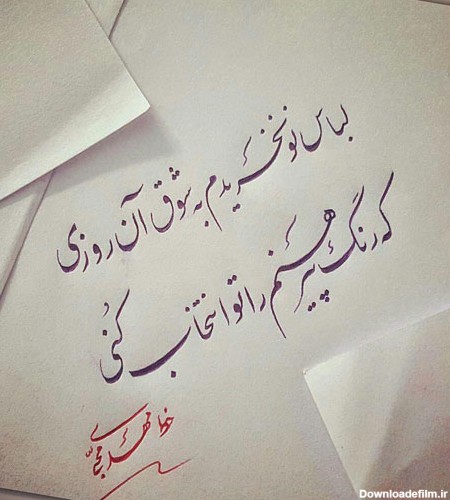 لباس نو نخریدم به شوق آن روزی
که رنگ پیرهنم را تو انتخاب کنی
Downloadefilm.ir